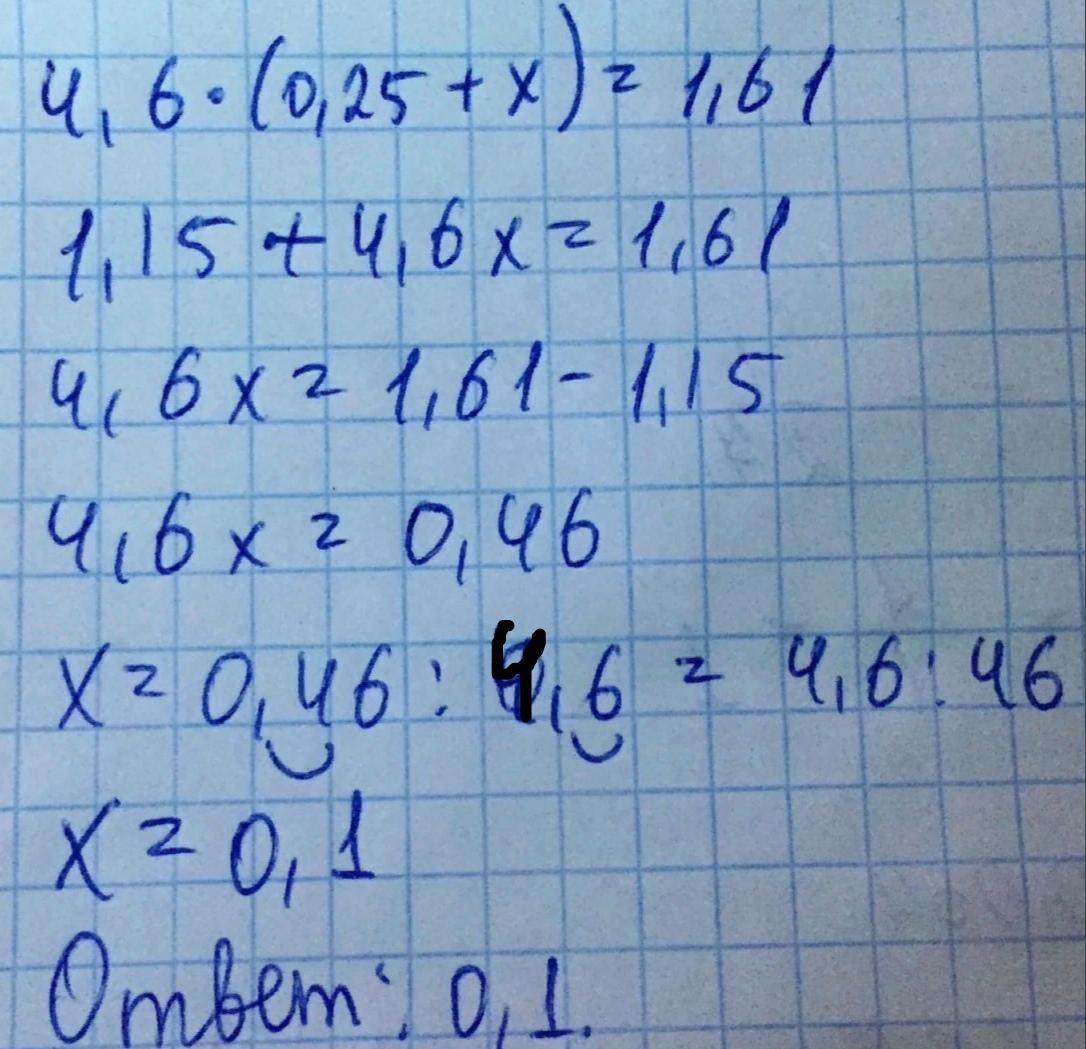 4,6·(0,25+x)=1,61
1,15+4,6x=1,61
4,6x=1,61-1,15
4,6x=0,46
x=0,46:4,6=4,6:46
x=0,1
Ответ: 0,1.